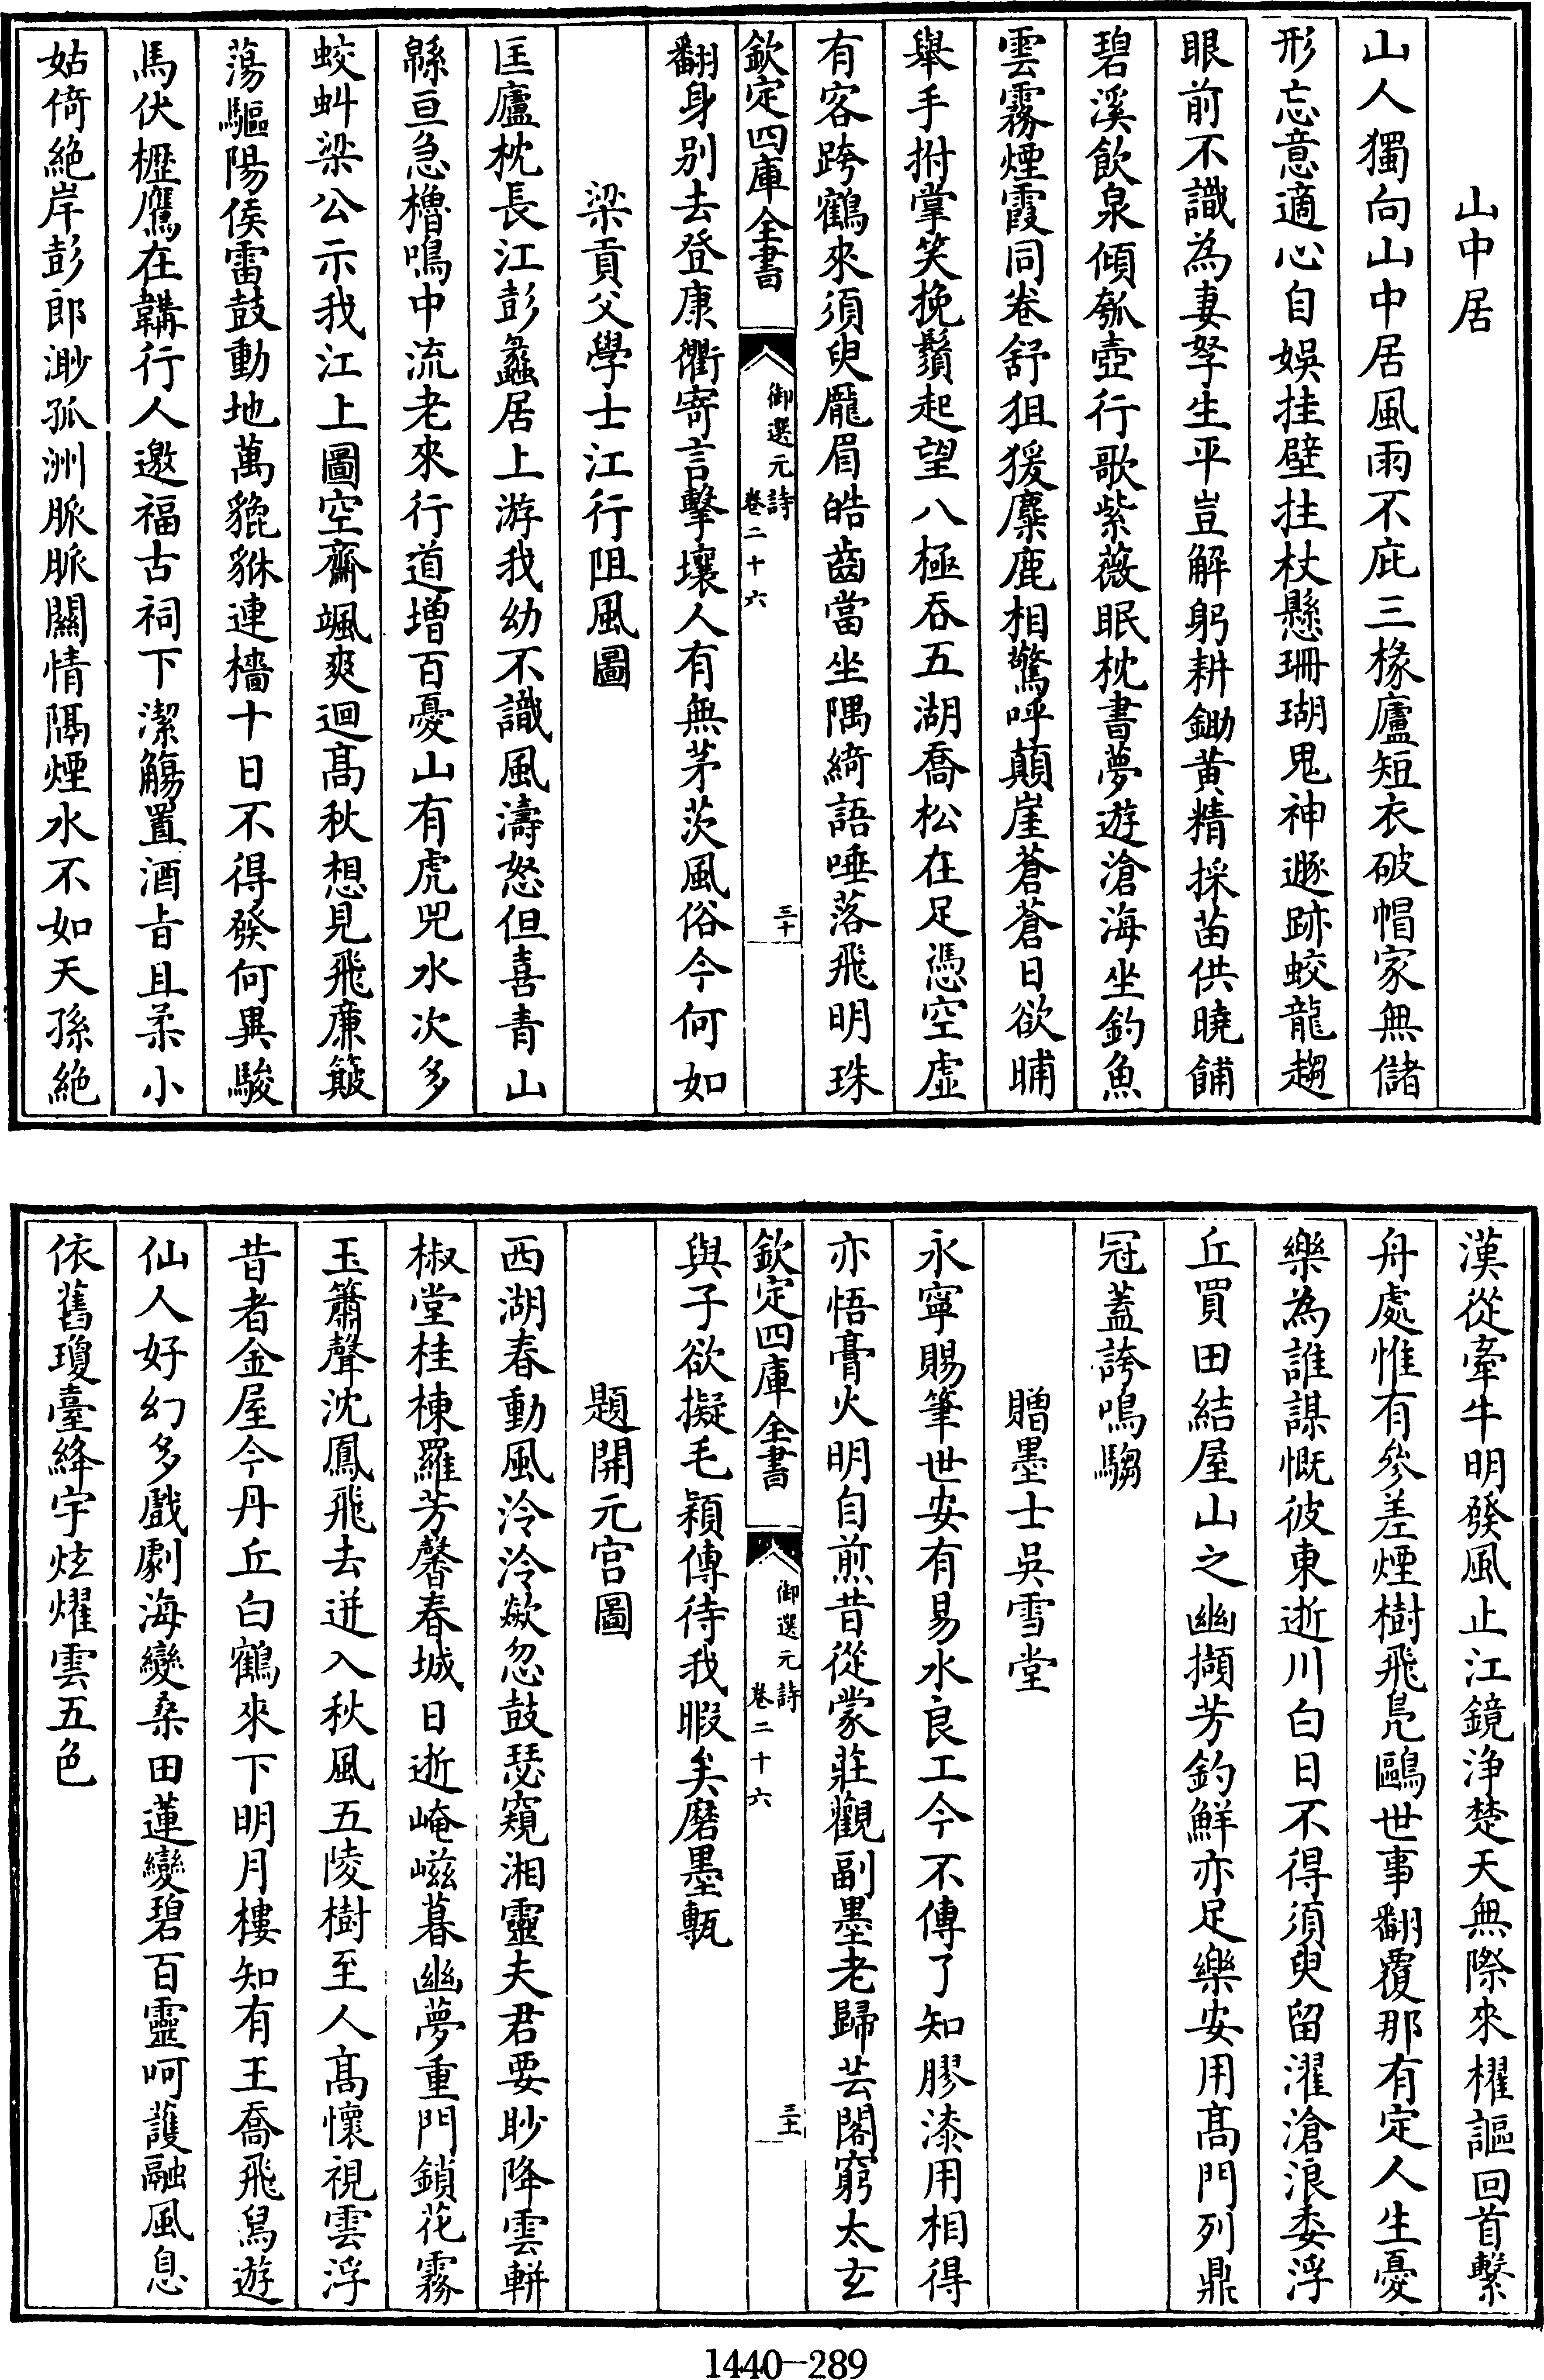 山中居
山人獨向山中居風雨不庇三椽廬短衣破帽家無儲
形忘意適心自娛挂壁拄杖懸珊瑚鬼神遯跡蛟龍趨
眼前不識為妻孥生平豈解躬耕鋤黄精採苗供曉餔
碧溪飲泉傾瓠壺行歌紫薇眠枕書夢遊滄海坐釣魚
雲霧煙霞同卷舒狙猨麋鹿相驚呼顛崖蒼蒼日欲晡
舉手拊掌笑挽鬚起望八極吞五湖喬松在足憑空虛
有客跨鶴來須臾厖眉皓齒當坐隅綺語唾落飛明珠
欽定四庫全書
御選元詩
卷二十六
三十
翻身別去登康衢寄言擊壤人有無茅茨風俗今何如
梁貢父學士江行阻風圖
匡廬枕長江彭蠡居上游我幼不識風濤怒但喜青山
緜亘急櫓鳴中流老來行道增百憂山有虎兕水次多
蛟虯梁公示我江上圖空齋颯爽迴髙秋想見飛廉簸
蕩驅陽侯雷鼓動地萬貔貅連檣十日不得發何異駿
馬伏櫪鷹在韝行人邀福古祠下潔觴置酒㫖且柔小
姑倚絶岸彭郎渺孤洲脈脈關情隔煙水不如天孫絶
漢從牽牛明發風止江鏡浄楚天無際來櫂謳回首繫
舟處惟有參差煙樹飛鳬鷗世事翻覆那有定人生憂
樂為誰謀慨彼東逝川白日不得須臾留濯滄浪委浮
丘買田結屋山之幽擷芳釣鮮亦足樂安用髙門列鼎
冠蓋誇鳴騶
贈墨士吳雪堂
永寧賜筆世安有易水良工今不傳了知膠漆用相得
亦悟膏火明自煎昔從蒙莊觀副墨老歸芸閣窮太玄
欽定四庫全書
御選元詩
卷二十六
三十一
與子欲擬毛穎傳待我暇矣磨墨甎
題開元宫圖
西湖春動風泠泠歘忽鼓瑟窺湘靈夫君要眇降雲軿
椒堂桂棟羅芳馨春城日逝崦嵫暮幽夢重門鎖花霧
玉簫聲沈鳳飛去迸入秋風五陵樹至人髙懷視雲浮
昔者金屋今丹丘白鶴來下明月樓知有王喬飛舄遊
仙人好幻多戲劇海變桑田蓮變碧百靈呵護融風息
依舊瓊臺絳宇炫燿雲五色
1440—289